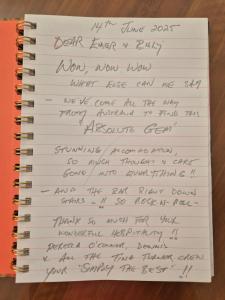 14th JUNE 2025
DEAR EIMER & BILLY
WOW, WOW WOW
WHAT ELSE CAN WE SAY
- WE'VE COME ALL THE WAY
FROM AUSTRALIA TO FIND THIS
'ABSOLUTE GEM'
STUNNING ACCOMODATION,
SO MUCH THOUGHT & CARE
GONE INTO EVERYTHING!!
- AND THE BAR RIGHT DOWN
STAIRS - !! SO ROCK-N-ROLL-
THANK SO MUCH FOR YOUR
WONDERFUL HOSPITALITY !!
O'CONNOR, DENNIS
& ALL THE TINA TURNER CREW
YOUR 'SIMPLY THE BEST' !!